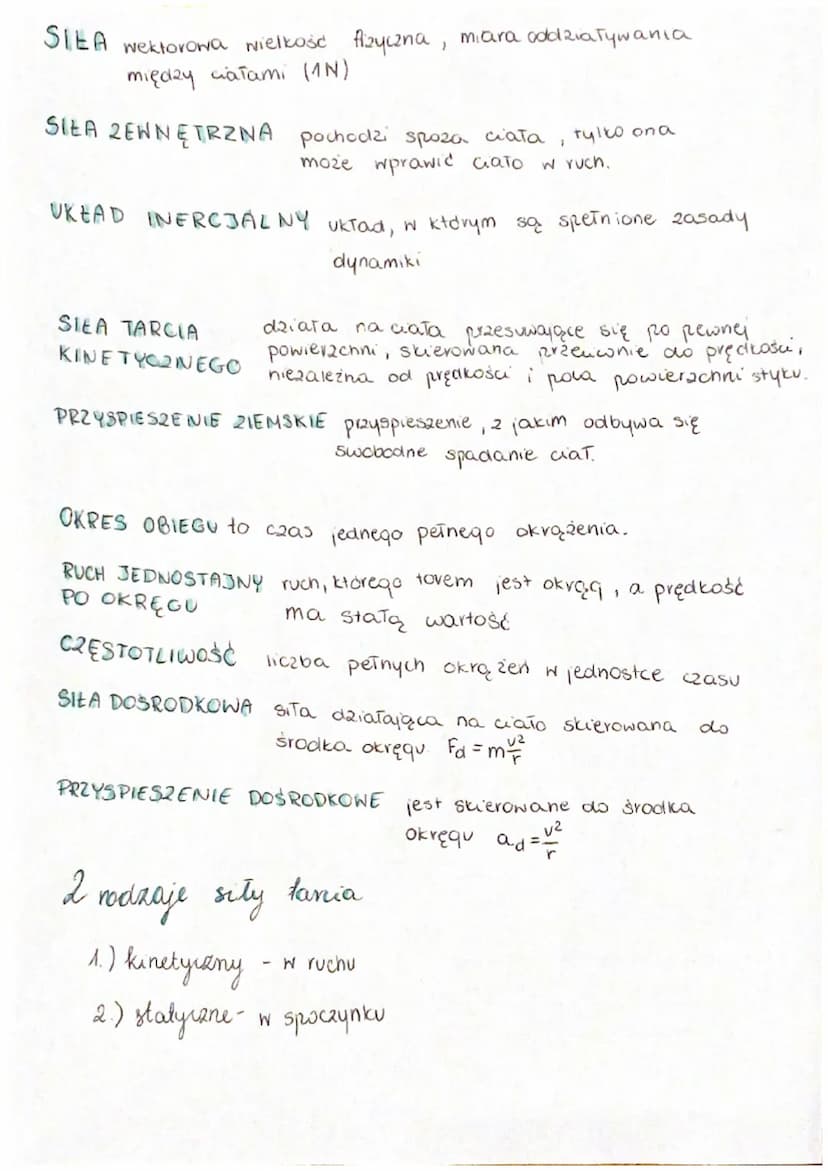 SIŁA wektorowa wielkość fizyczna, miara oddziaływania
między ciałami (1N)
SIŁA ZEWNĘTRZNA pochodzi spoza ciała, tylko ona
może wprawić ciało w ruch.
UKŁAD INERCJALNY układ, w którym są spełnione zasady
dynamiki
SIŁA TARCIA działa na ciała przesuwające się po pewnej
KINETYCZNEGO powierzchni, skierowana przeciwnie do prędkości,
niezależna od prędkości i pola powierzchni styku.
PRZYSPIESZENIE ZIEMSKIE przyspieszenie, z jakim odbywa się
swobodne spadanie ciał.
OKRES OBIEGU to czas jednego pełnego okrążenia.
RUCH JEDNOSTAJNY ruch, którego torem jest okrąg, a prędkość
PO OKRĘGU ma stałą wartość
CZĘSTOTLIWOŚĆ liczba pełnych okrążeń w jednostce czasu
SIŁA DOŚRODKOWA siła działająca na ciało skierowana do
środka okręgu Fd = m v²/r
PRZYSPIESZENIE DOŚRODKOWE jest skierowane do środka
okręgu ad = v²/r
2 rodzaje siły tarcia
1.) kinetyczny - w ruchu
2.) statyczne - w spoczynku